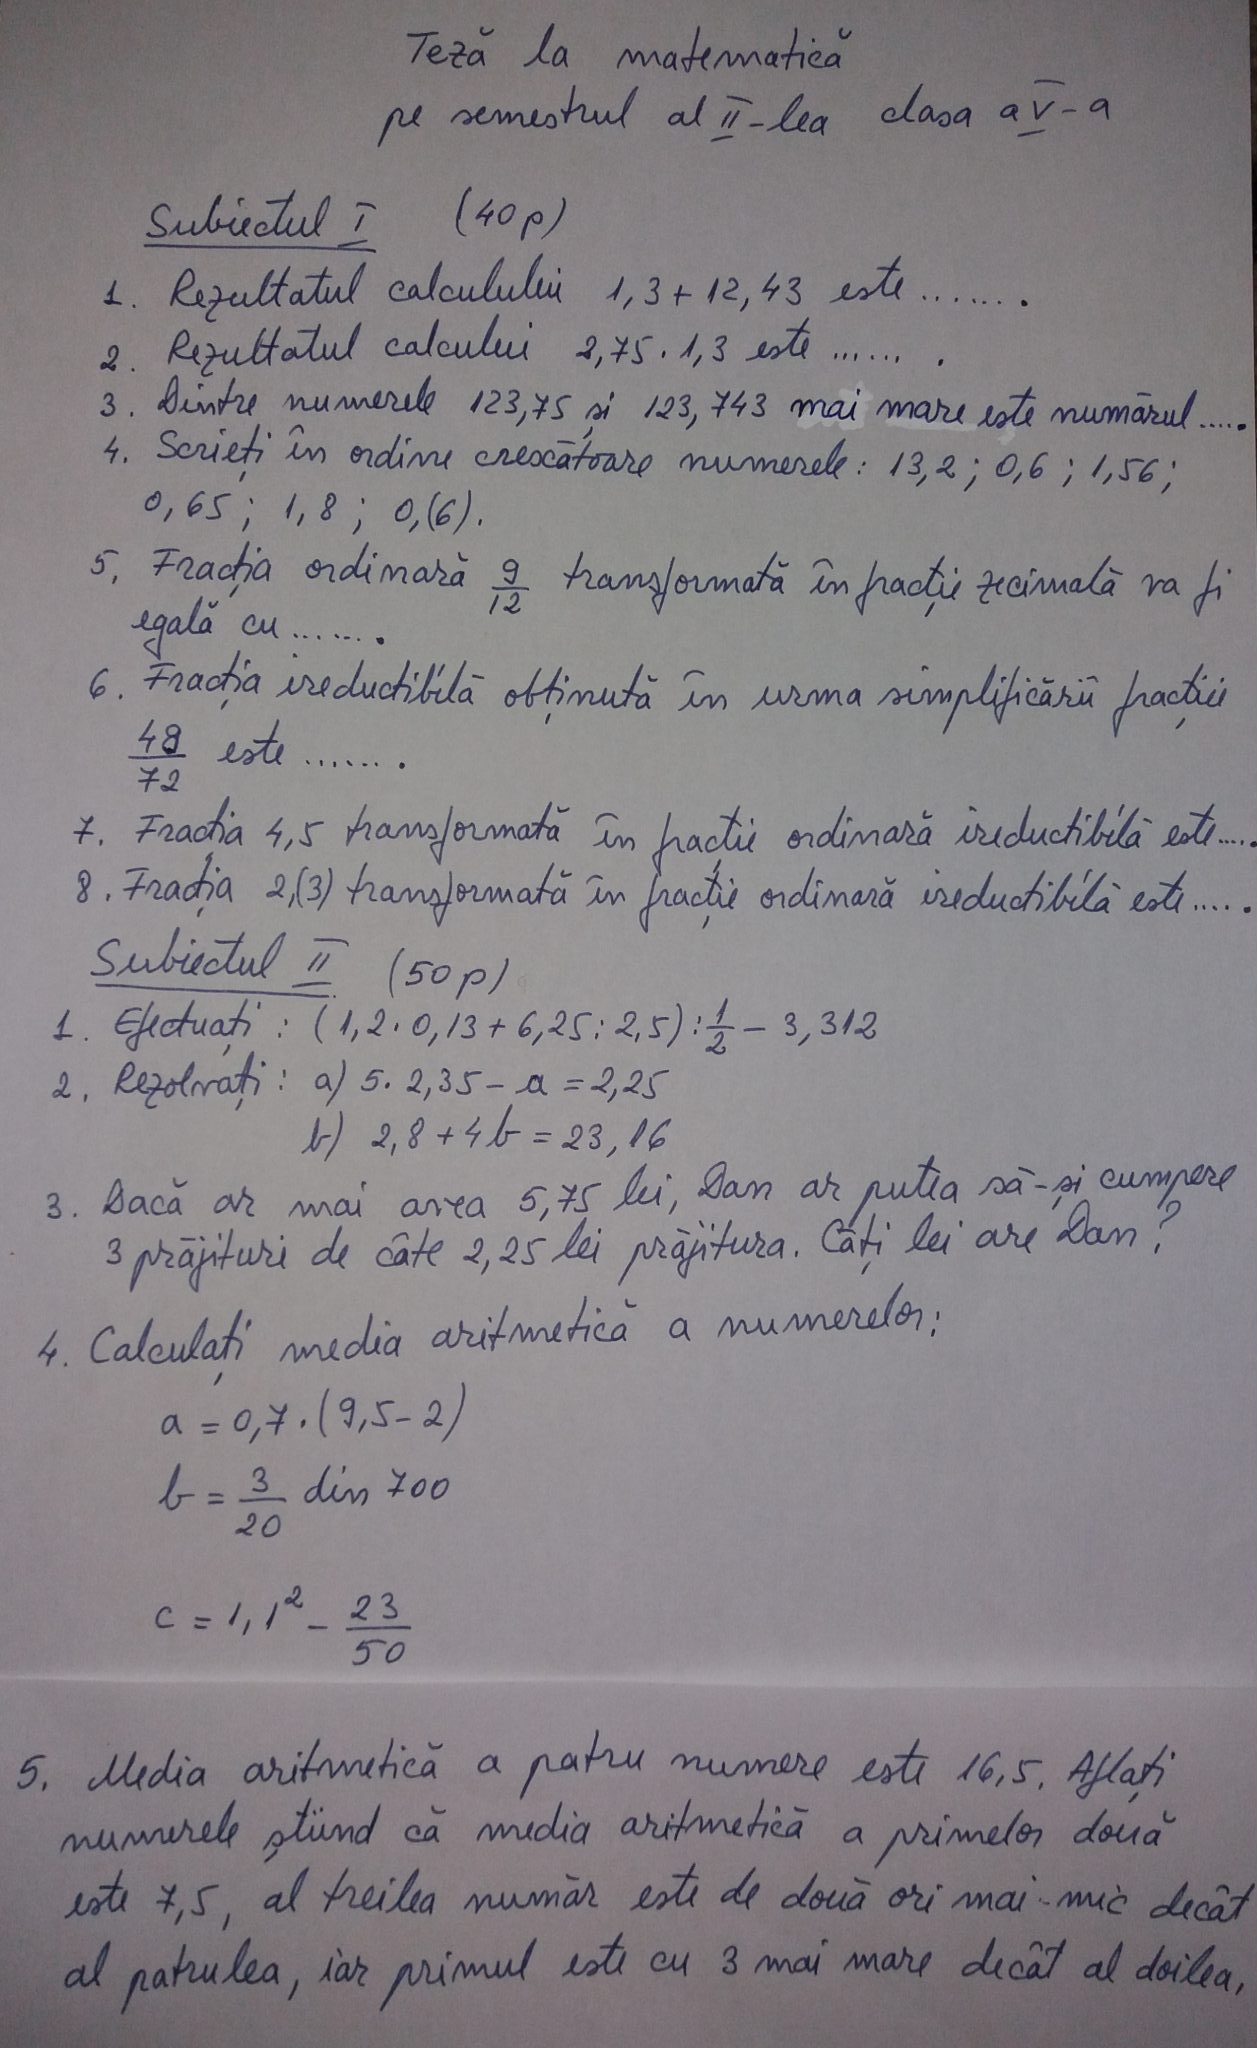 Teză la matematică
pe semestrul al II-lea clasa a V-a
Subiectul I (40p)
1. Rezultatul calculului 1,3+12,43 este ........
2. Rezultatul calcului 2,75·1,3 este ...... .
3. Dintre numerele 123,75 și 123,743 mai mare este numărul .....
4. Scrieți în ordine crescătoare numerele: 13,2; 0,6; 1,56;
0,65; 1,8; 0,(6).
5. Fracția ordinară 9/12 transformată în fracție zecimală va fi
egală cu ........
6. Fracția ireductibilă obținută în urma simplificării fracției
48/72 este ....... .
7. Fracția 4,5 transformată în fracție ordinară ireductibilă este.....
8. Fracția 2,(3) transformată în fracție ordinară ireductibilă este..... .
Subiectul II (50p)
1. Efectuați: (1,2·0,13+6,25:2,5):1/2-3,312
2. Rezolvați: a) 5·2,35-a=2,25
b) 2,8+4b=23,16
3. Dacă ar mai avea 5,75 lei, Dan ar putea să-și cumpere
3 prăjituri de câte 2,25 lei prăjitura. Câți lei are Dan?
4. Calculați media aritmetică a numerelor:
a=0,7·(9,5-2)
b=3/20 din 700
c=1,1²-23/50
5. Media aritmetică a patru numere este 16,5. Aflați
numerele știind că media aritmetică a primelor două
este 7,5, al treilea număr este de două ori mai mic decât
al patrulea, iar primul este cu 3 mai mare decât al doilea.